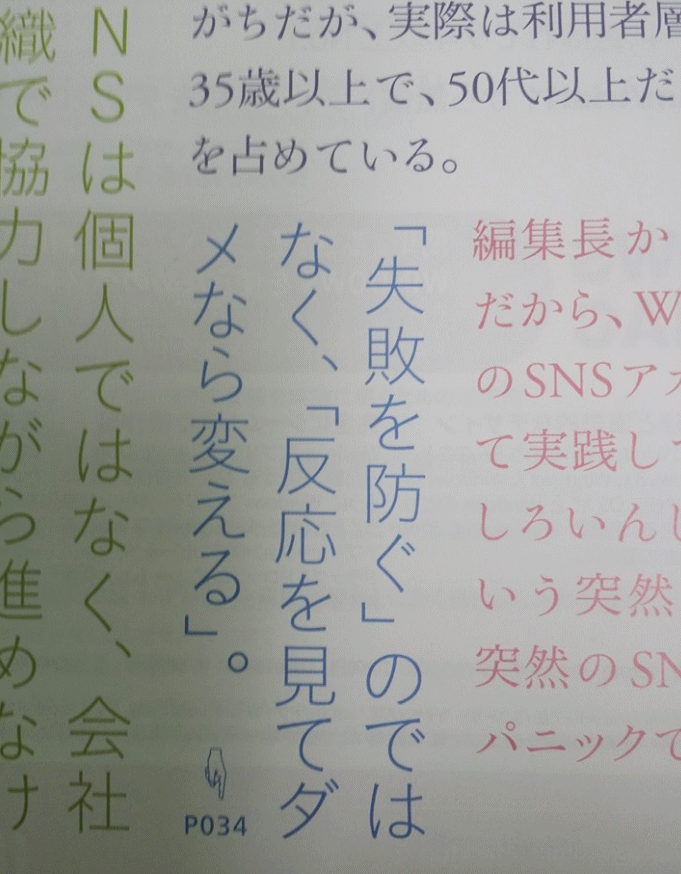 がちだが、実際は利用者層
35歳以上で、50代以上だ
を占めている。
編集長か
だから、W
のSNSアカ
て実践し
しろいんし
いう突然
突然のSN
パニックで
「失敗を防ぐ」のでは
なく、「反応を見てダ
メなら変える」。
P034
NSは個人ではなく、会社
織で協力しながら進めなけ